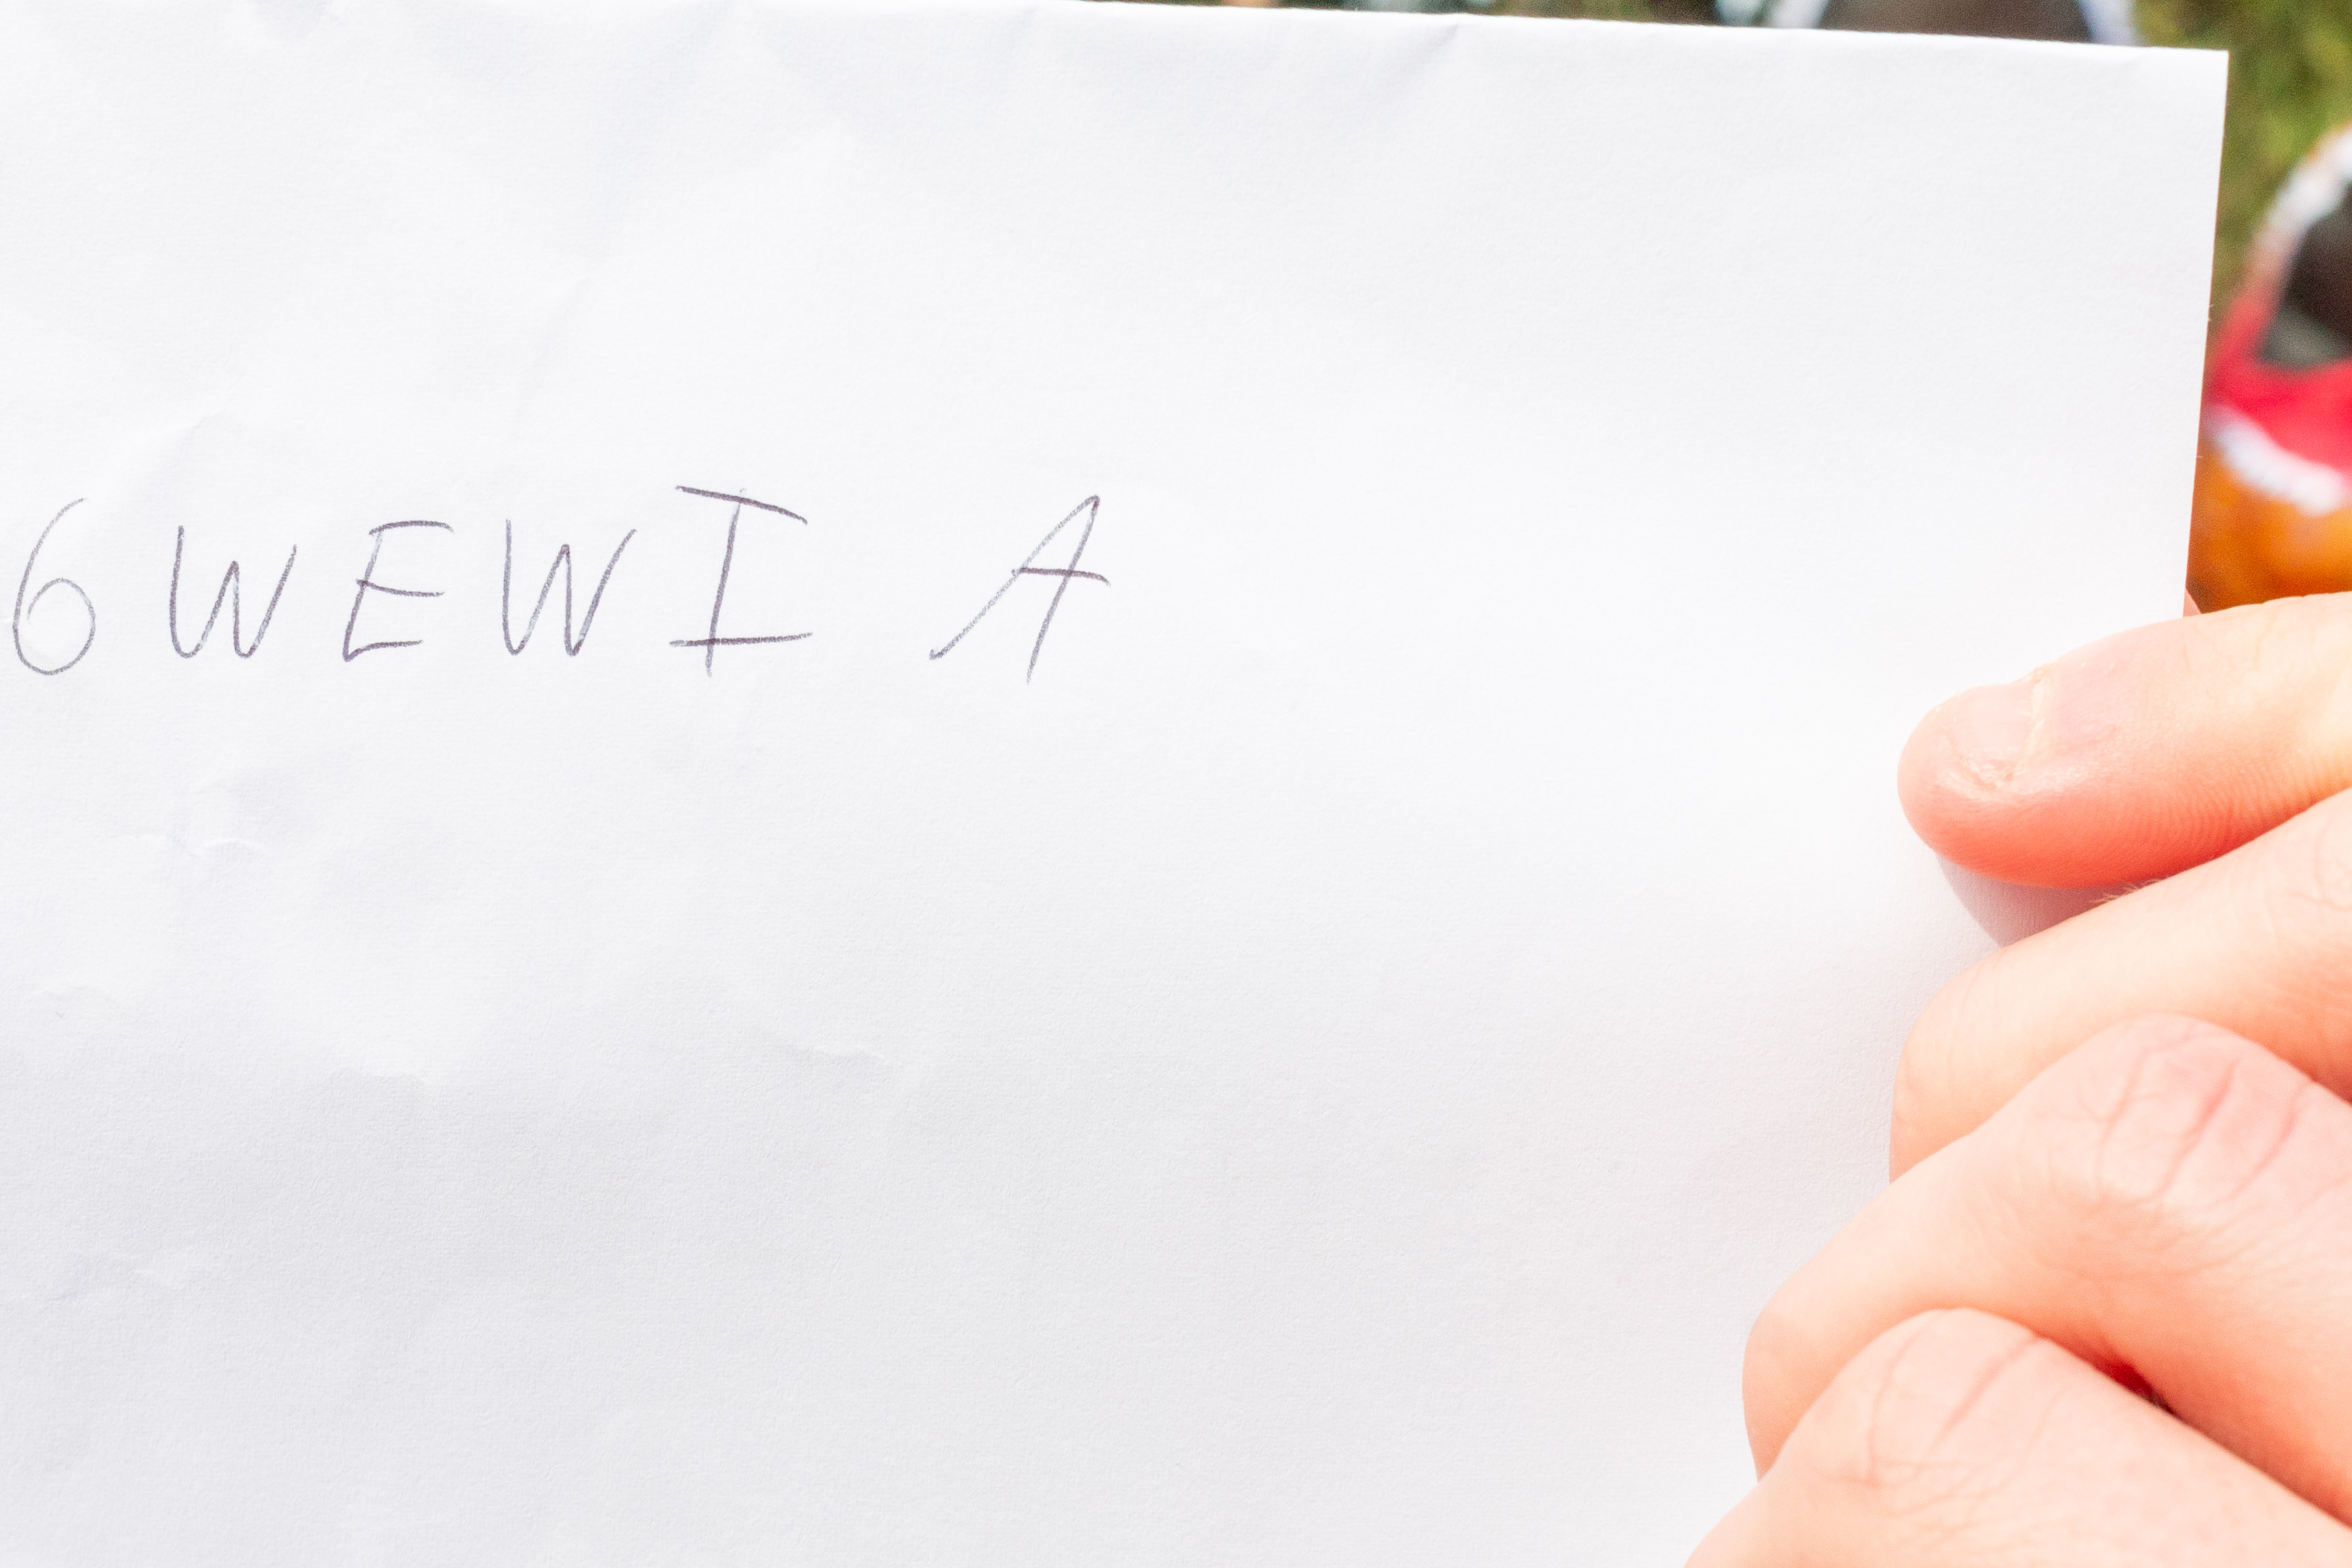 6WEWI A